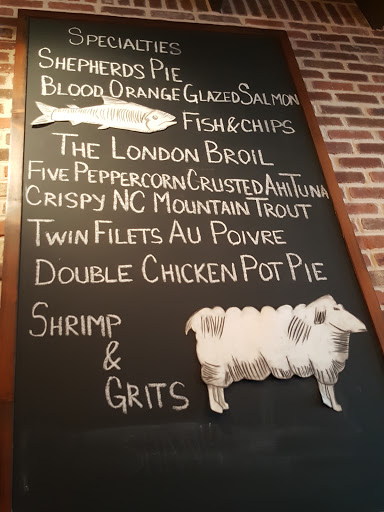 SPECIALTIES
SHEPHERDS PIE
BLOOD ORANGE GLAZED SALMON
FISH & CHIPS
THE LONDON BROIL
FIVE PEPPERCORN CRUSTED AHI TUNA
CRISPY NC MOUNTAIN TROUT
TWIN FILETS AU POIVRE
DOUBLE CHICKEN POT PIE
SHRIMP
&
GRITS